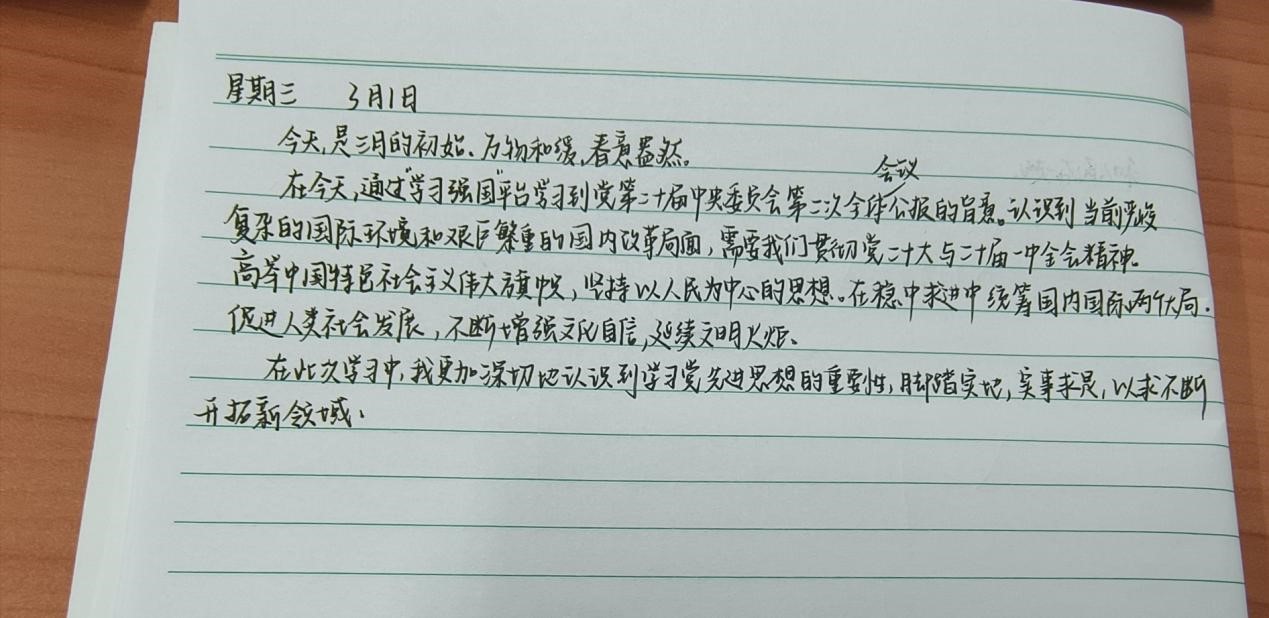 星期三 3月1日
今天,是三月的初始、万物和缓,春意盎然。
在今天,通过"学习强国"平台学习到党第二十届中央委员会第二次全体会议公报的旨意。认识到当前严峻
复杂的国际环境和艰巨繁重的国内改革局面,需要我们贯彻党二十大与二十届一中全会精神。
高举中国特色社会主义伟大旗帜,坚持以人民为中心的思想。在稳中求进中统筹国内国际两个大局.
促进人类社会发展,不断增强文化自信,延续文明火炬、
在此次学习中,我更加深切地认识到学习党先进思想的重要性,脚踏实地,实事求是,以求不断
开拓新领域.